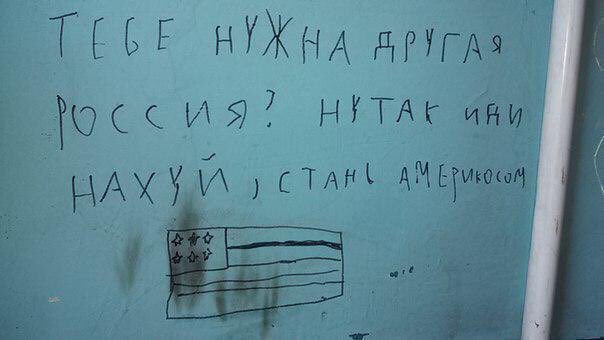 ТЕБЕ НУЖНА ДРУГАЯ
РОССИЯ? НУ ТАК ИДИ
НАХУЙ, СТАНЬ АМЕРИКОСОМ